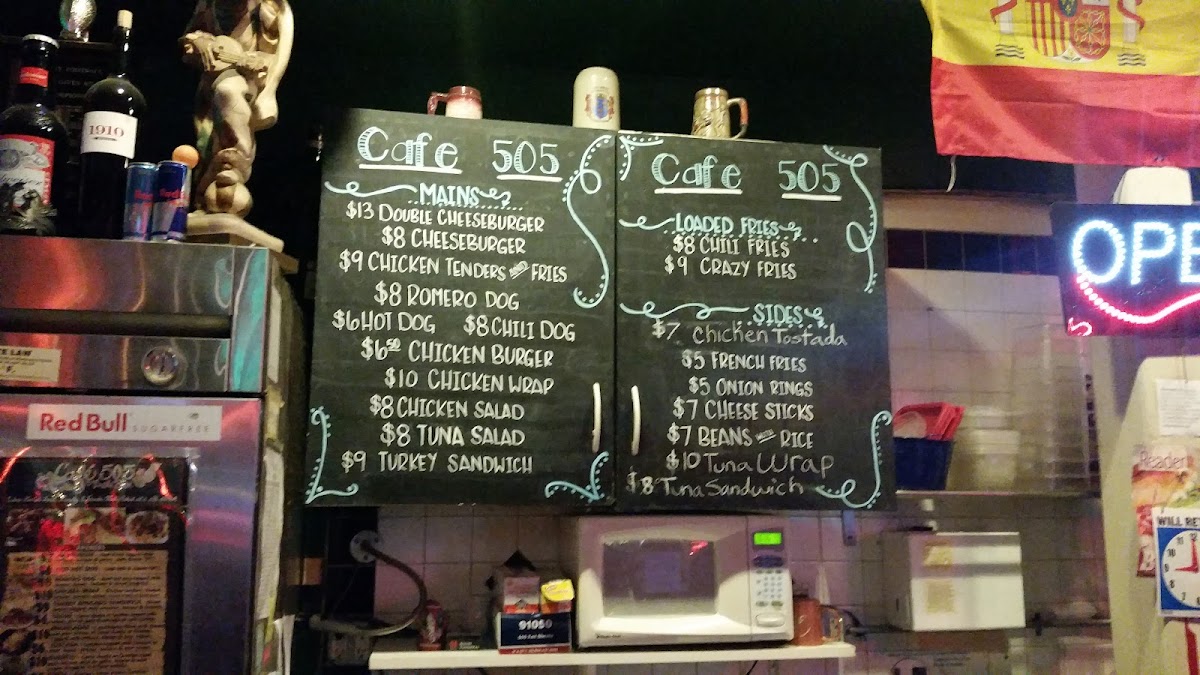 Cafe 505
MAINS
$13 DOUBLE CHEESEBURGER
$8 CHEESEBURGER
$9 CHICKEN TENDERS AND FRIES
$8 ROMERO DOG
$6 HOT DOG $8 CHILI DOG
$6.50 CHICKEN BURGER
$10 CHICKEN WRAP
$8 CHICKEN SALAD
$8 TUNA SALAD
$9 TURKEY SANDWICH
Cafe 505
LOADED FRIES
$8 CHILI FRIES
$9 CRAZY FRIES
SIDES
$7 Chicken Tostada
$5 FRENCH FRIES
$5 ONION RINGS
$7 CHEESE STICKS
$7 BEANS WITH RICE
$10 Tuna Wrap
$8 Tuna Sandwich
1910
RedBull
SUGARFREE
Cafe 505
OPE
91050
Reader
WILL RE
11 12